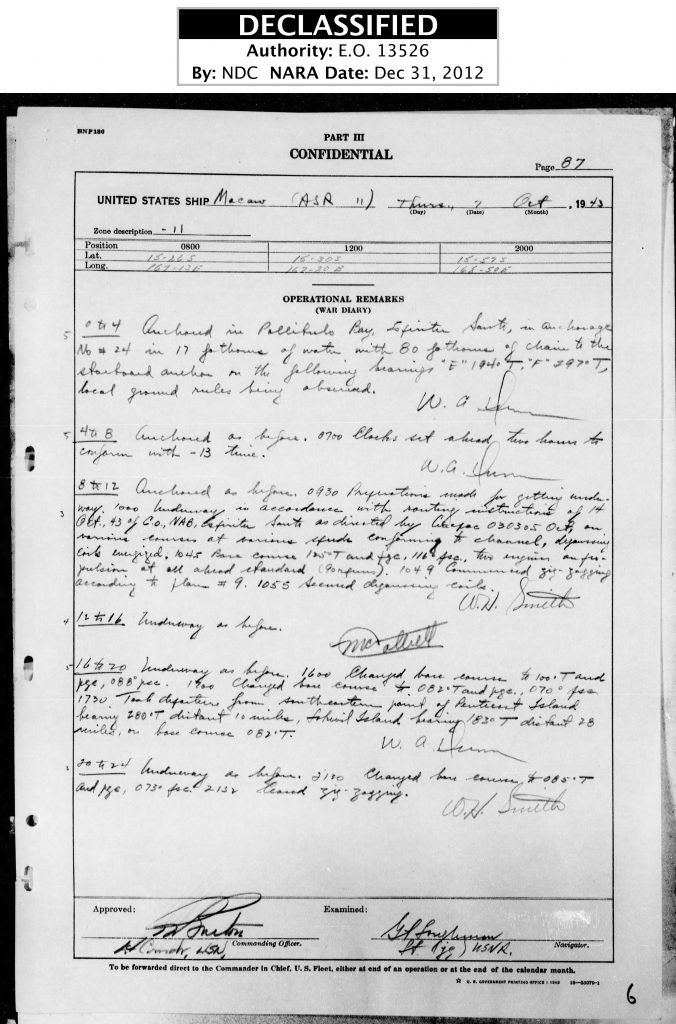 DECLASSIFIED
Authority: E.O. 13526
By: NDC NARA Date: Dec 31, 2012
BNP 180
PART III
CONFIDENTIAL
Page 87
UNITED STATES SHIP Macaw (ASR 11) Thurs, 7 Oct, 1943
(Day) (Date) (Month)
Zone description -11
Position 0800 1200 2000
Lat. 15-26S 15-30S 15-57S
Long. 167-13E 167-20E 168-50E
OPERATIONAL REMARKS
(WAR DIARY)
5 0 to 4 Anchored in Pallikulo Bay, Espiritu Santo, in anchorage
No # 24 in 17 fathoms of water with 80 fathoms of chain to the
starboard anchor on the following bearings "E" 194°T, "F" 297°T,
local ground rules being observed.
W. A. Dunn
5 4 to 8 Anchored as before. 0700 Clocks set ahead two hours to
conform with -13 time.
W. A. Dunn
8 to 12 Anchored as before. 0930 Preparations made for getting under-
3 way. 1000 Underway in accordance with routing instructions of 14
Oct, 43 of C.O., NAB, Espiritu Santo as directed by 030305 Oct, on
various courses at various speeds conforming to channel, degaussing
coils energized. 1045 Base course 125°T and pgc, 118° psc, two engines on pro-
pulsion at all ahead standard (90 rpms). 1049 Commenced zig-zagging
according to plan # 9. 1055 Secured degaussing coils
W. H. Smith
4 12 to 16 Underway as before.
5 16 to 20 Underway as before. 1600 Changed base course to 100°T and
pgc, 088° psc. 1700 Changed base course to 082°T and pgc, 070° psc
1730. Took departure from southeastern point of Pentecost Island
bearing 280°T, distant 10 miles, Island bearing 183°T distant 28
miles, on base course 082°T.
W. A. Dunn
20 to 24 Underway as before. 2120 Changed base course to 085°T
and pgc, 073° psc. 2132 Ceased zig-zagging.
W. H. Smith
Approved: Examined:
Lt Comdr, USN, Commanding Officer. Lt (jg) USNR. Navigator.
To be forwarded direct to the Commander in Chief, U. S. Fleet, either at end of an operation or at the end of the calendar month.
☆ U. S. GOVERNMENT PRINTING OFFICE : 1943
6